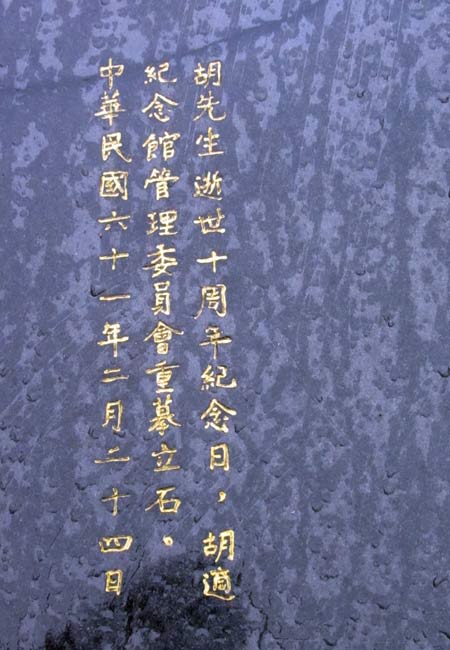 胡先生逝世十周年紀念日，胡適
紀念館管理委員會重摹立石。
中華民國六十一年二月二十四日